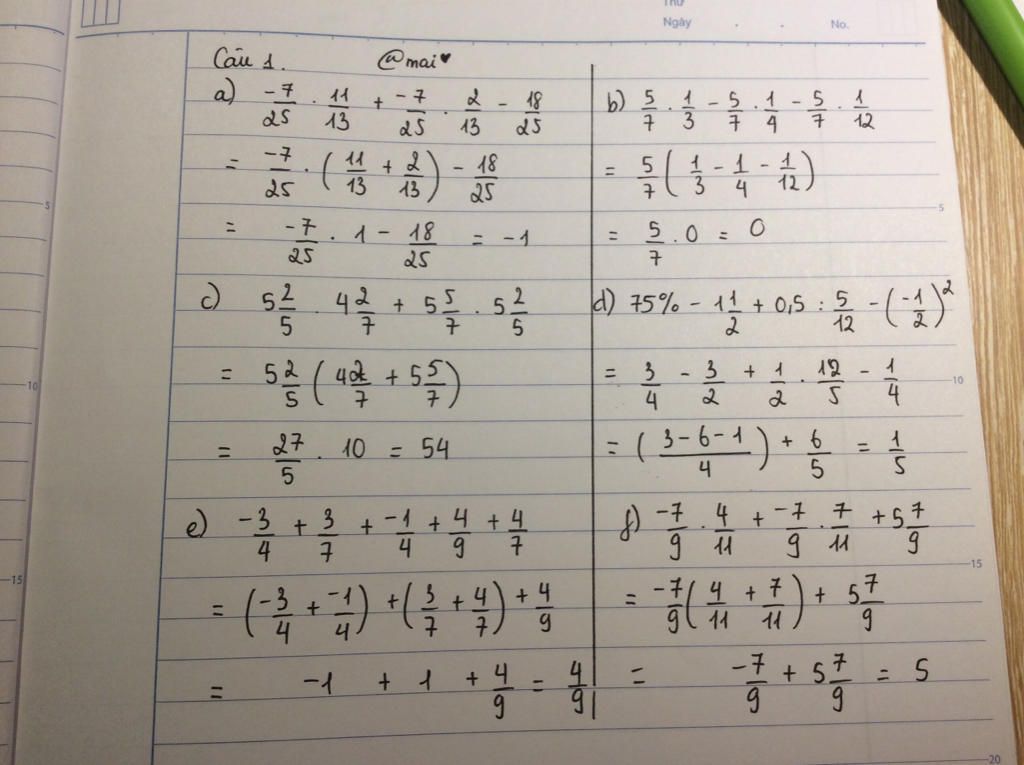 Thứ
Ngày . . No.
Câu 1. @mai♥
a) -7/25 · 11/13 + -7/25 · 2/13 - 18/25
= -7/25 · (11/13 + 2/13) - 18/25
= -7/25 · 1 - 18/25 = -1
b) 5/7 · 1/3 - 5/7 · 1/4 - 5/7 · 1/12
= 5/7 (1/3 - 1/4 - 1/12)
= 5/7 · 0 = 0
c) 5 2/5 · 4 2/7 + 5 5/7 · 5 2/5
= 5 2/5 (4 2/7 + 5 5/7)
= 27/5 · 10 = 54
d) 75% - 1 1/2 + 0,5 : 5/12 - (-1/2)²
= 3/4 - 3/2 + 1/2 · 12/5 - 1/4
= ((3-6-1)/4) + 6/5 = 1/5
e) -3/4 + 3/7 + -1/4 + 4/9 + 4/7
= (-3/4 + -1/4) + (3/7 + 4/7) + 4/9
= -1 + 1 + 4/9 = 4/9
f) -7/9 · 4/11 + -7/9 · 7/11 + 5 7/9
= -7/9 (4/11 + 7/11) + 5 7/9
= -7/9 + 5 7/9 = 5
5
10
15
5
10
15
20